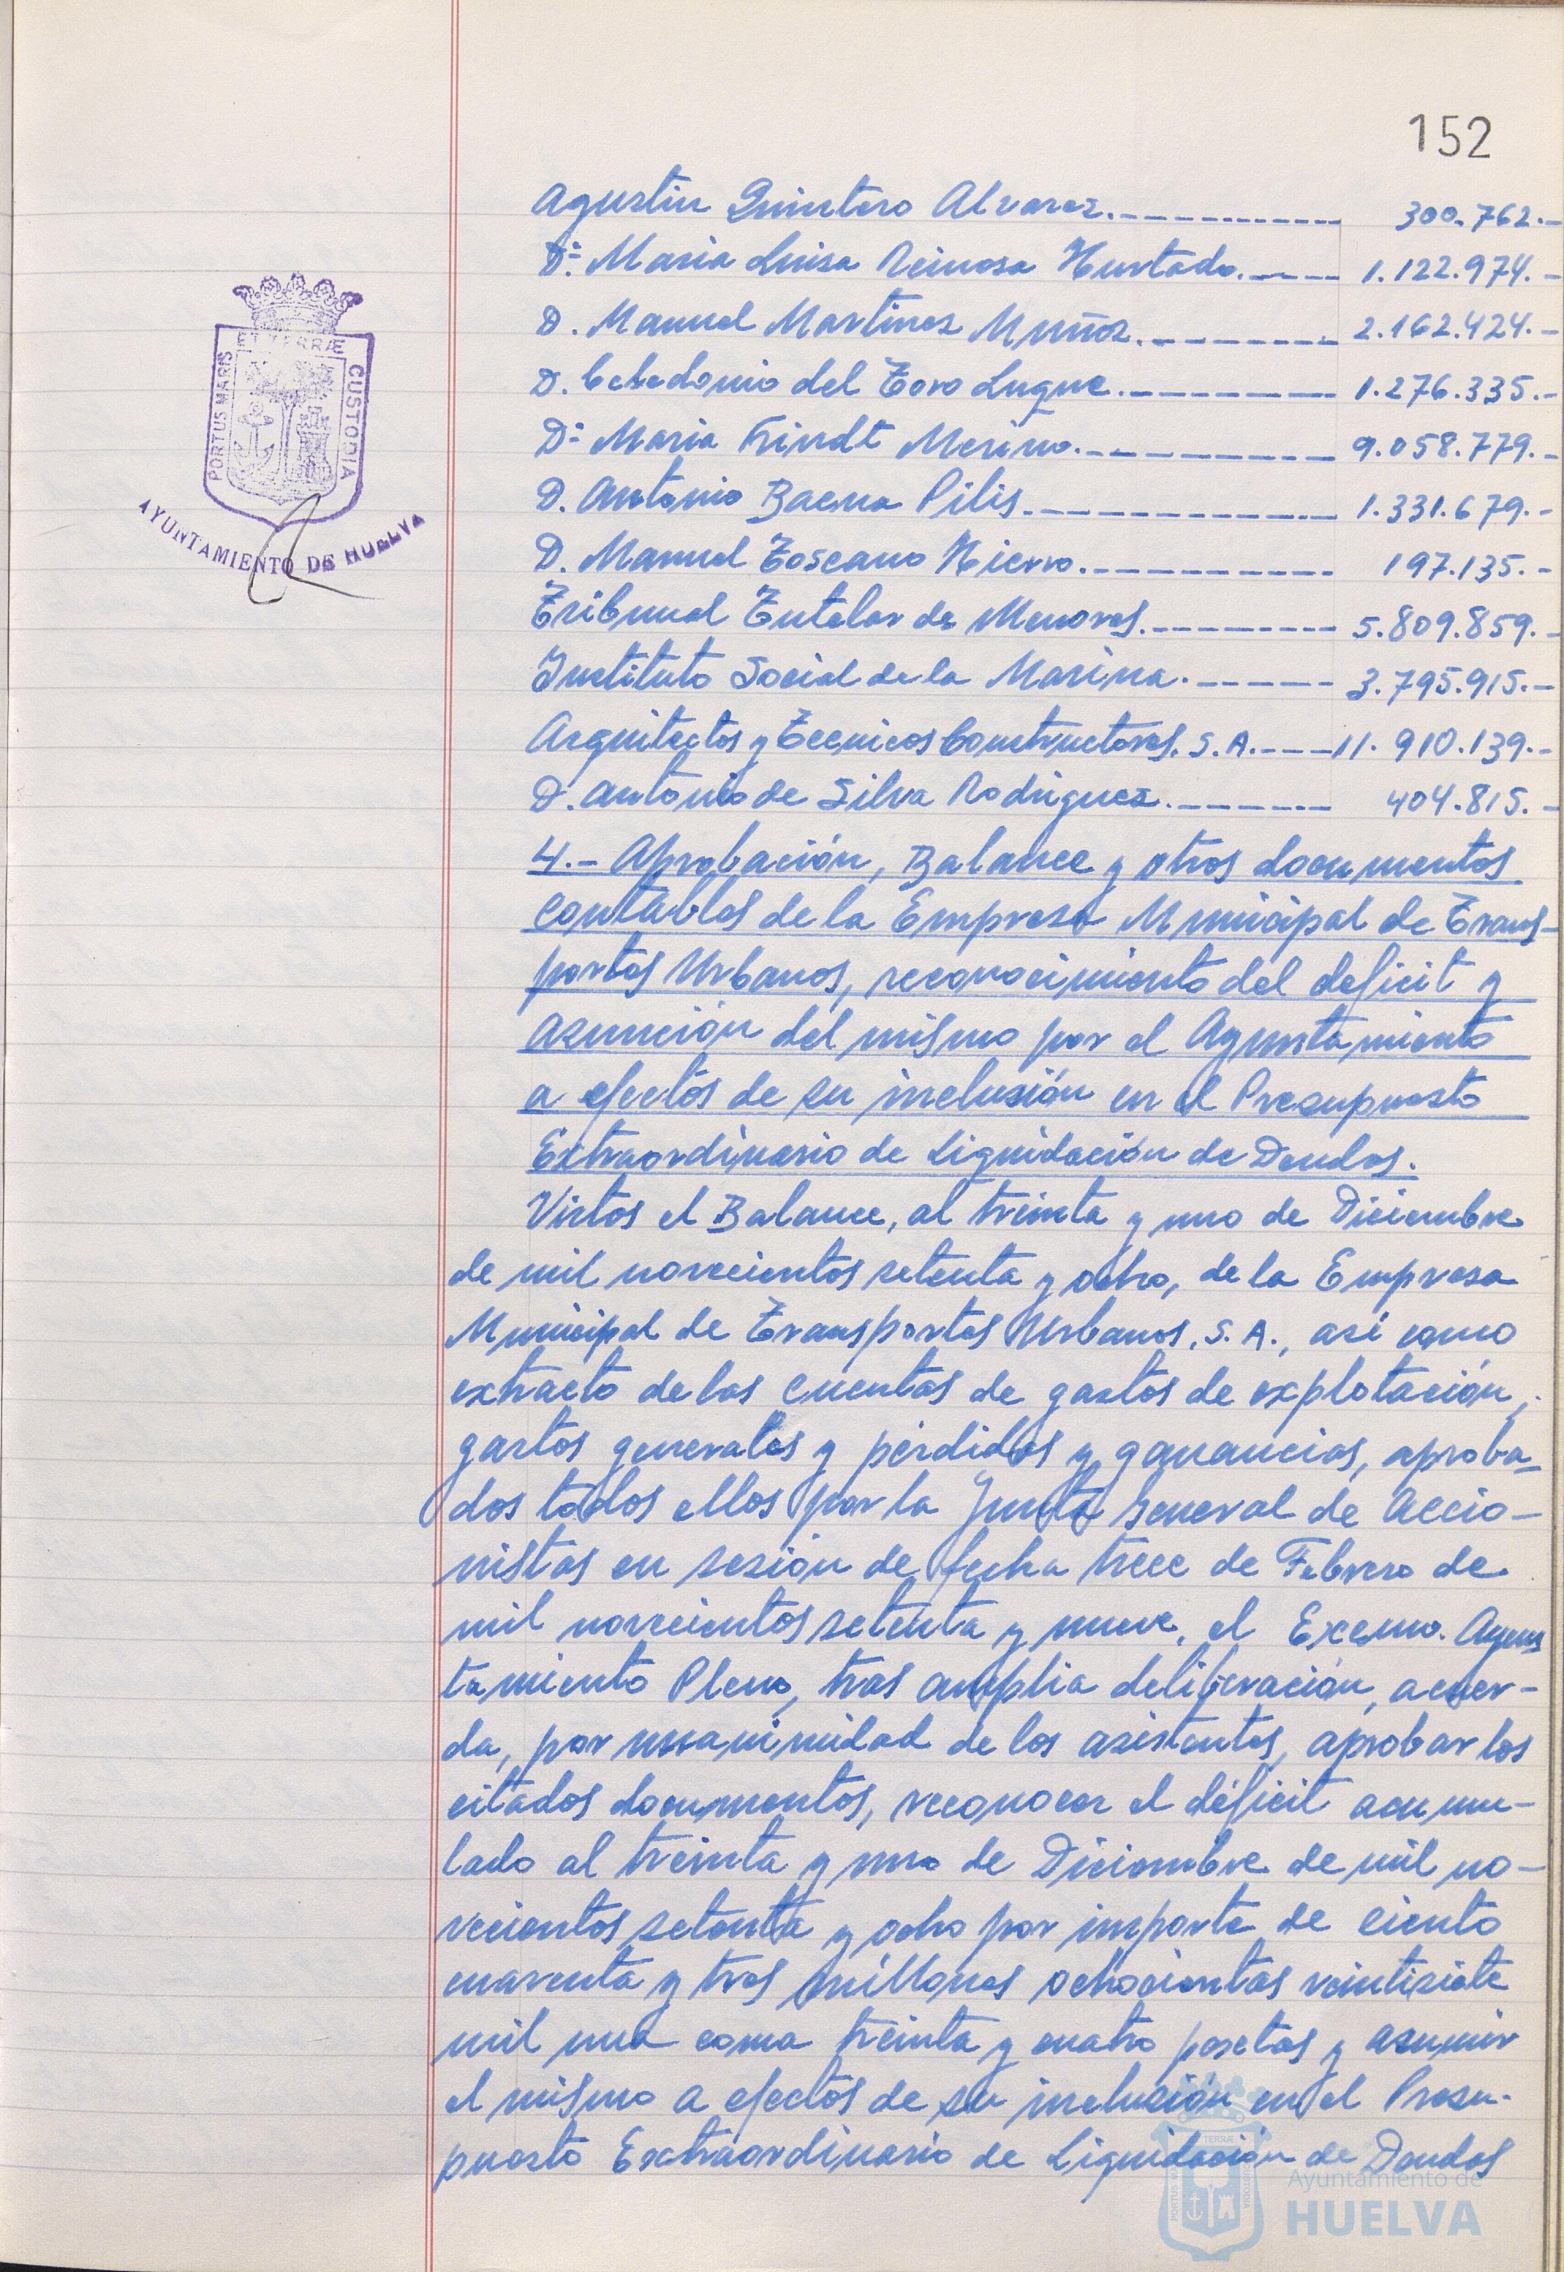 152
Agustin Quintero Alvarez.------------ 300.762.-
Dª Maria Luisa Reinosa Hurtado.---- 1.122.974.-
D. Manuel Martinez Muñoz.-------- 2.162.424.-
D. Celedonio del Toro Luque.--------- 1.276.335.-
Dª Maria Trindt Merino.---------- 9.058.779.-
D. Antonio Baena Pilis.------------ 1.331.679.-
D. Manuel Toscano Hierro.---------- 197.135.-
Tribunal Tutelar de Menores.-------- 5.809.859.-
Instituto Social de la Marina.------ 3.795.915.-
Arquitectos y Tecnicos Constructores, S.A.---- 11.910.139.-
D. Antonio de Silva Rodriguez.------- 404.815.-
4.- Aprobación, Balance y otros documentos
contables de la Empresa Municipal de Trans-
portes Urbanos, reconocimiento del deficit y
asunción del mismo por el Ayuntamiento
a efectos de su inclusión en el Presupuesto
Extraordinario de Liquidación de Deudas.
Vistos el Balance, al treinta y uno de Diciembre
de mil novecientos setenta y ocho, de la Empresa
Municipal de Transportes Urbanos, S.A., asi como
extracto de las cuentas de gastos de explotación,
gastos generales y pérdidas y ganancias, aproba-
dos todos ellos por la Junta General de Accio-
nistas en sesión de fecha trece de Febrero de
mil novecientos setenta y nueve, el Excmo. Ayun
tamiento Pleno, tras amplia deliberación, acuer-
da, por unanimidad de los asistentes, aprobar los
citados documentos, reconocer el déficit acumu-
lado al treinta y uno de Diciembre de mil no-
vecientos setenta y ocho por importe de ciento
cuarenta y tres millones ochocientas veintisiete
mil una coma treinta y cuatro pesetas y asumir
el mismo a efectos de su inclusión en el Presu-
puesto Extraordinario de Liquidación de Deudas
PORTUS MARIS ET TERRÆ CUSTODIA
AYUNTAMIENTO DE HUELVA
Ayuntamiento de
HUELVA